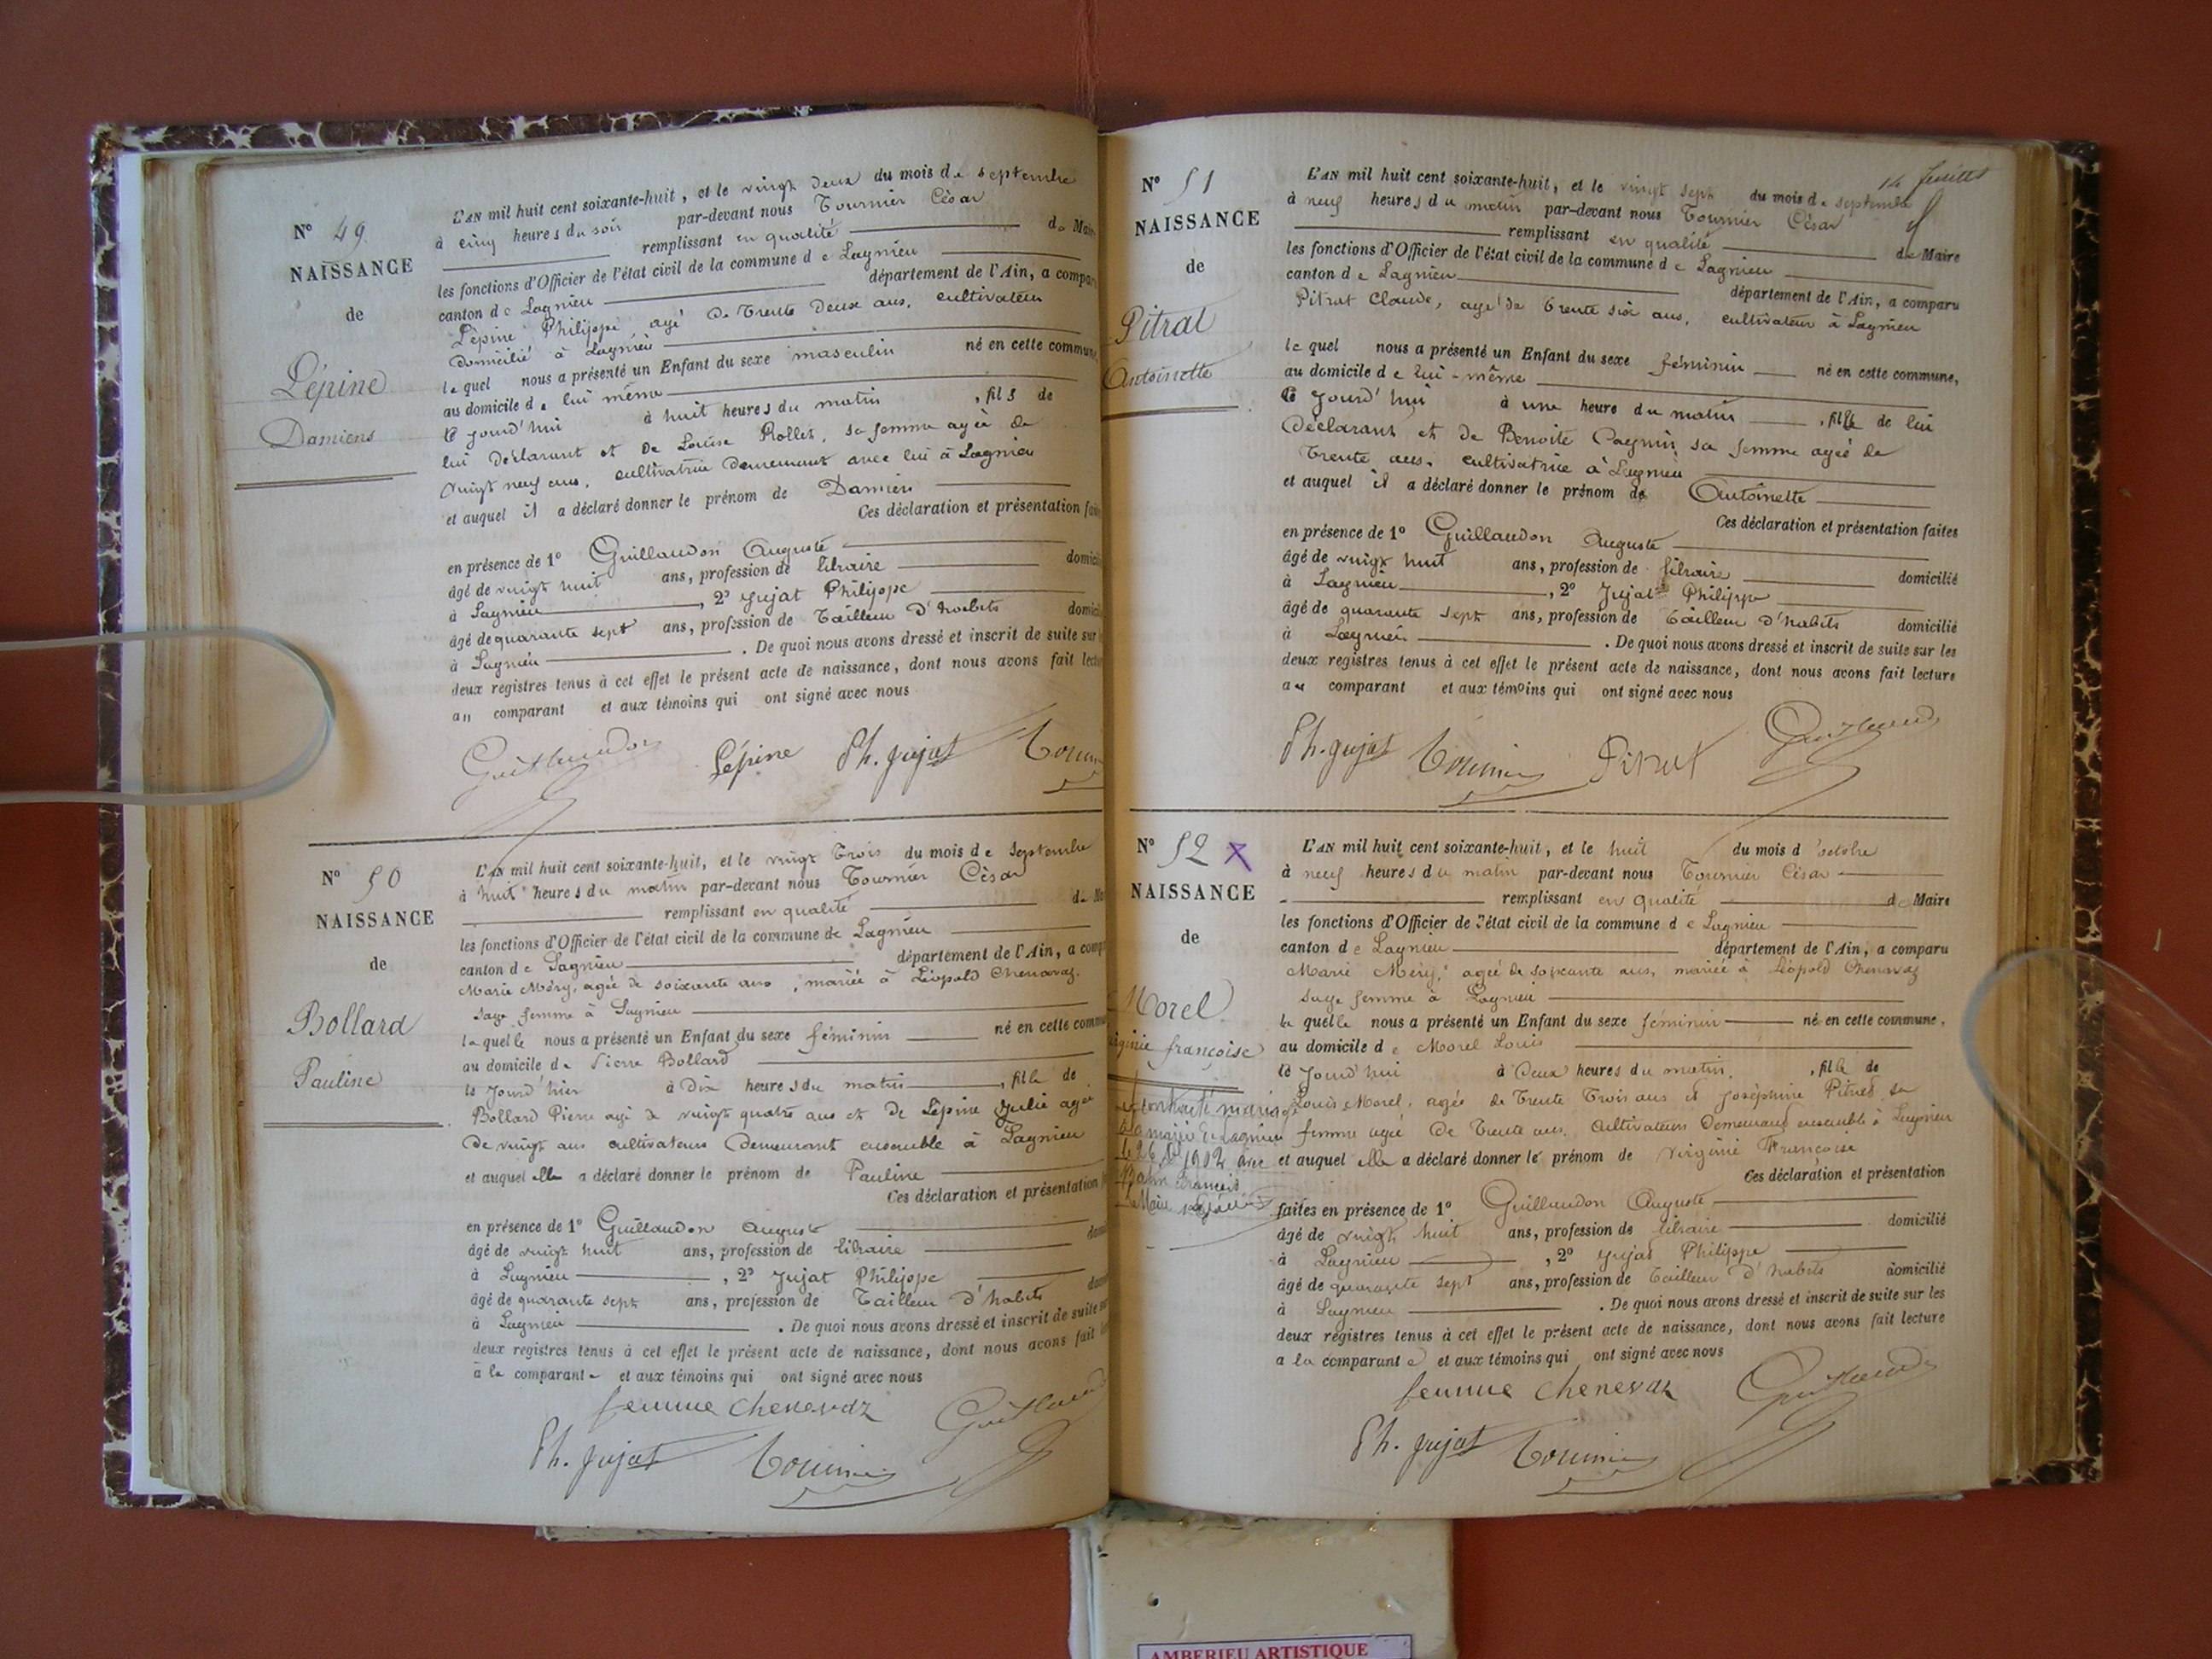 N° 49
NAISSANCE
de
Lépine
Damiens
L'AN mil huit cent soixante-huit, et le vingt deux du mois de septembre
à cinq heures du soir par-devant nous Tournier Cèsar
remplissant en qualité de Mair
les fonctions d'Officier de l'état civil de la commune de Lagnieu
canton de Lagnieu département de l'Ain, a compar
Lépine Philippe agé de trente deux ans, cultivateur
domicilié à Lagnieu
lequel nous a présenté un Enfant du sexe masculin né en cette commune
au domicile de lui même
ce jourd'hui à huit heures du matin, fils de
lui déclarant et de Louise Rollet, sa femme agée de
vingt neuf ans, cultivatrice demeurant avec lui à Lagnieu
et auquel il a déclaré donner le prénom de Damien
Ces déclaration et présentation fai
en présence de 1° Guillaudon Auguste
âgé de vingt huit ans, profession de libraire domici
à Lagnieu, 2° Jujat Philippe
âgé de quarante sept ans, profession de Tailleur d'habits domici
à Lagnieu. De quoi nous avons dressé et inscrit de suite sur
deux registres tenus à cet effet le présent acte de naissance, dont nous avons fait lectu
au comparant et aux témoins qui ont signé avec nous
Guillaudon Lépine Ph. Jujat Tourn
N° 50
NAISSANCE
de
Bollard
Pauline
L'AN mil huit cent soixante-huit, et le vingt trois du mois de septembre
à huit heures du matin par-devant nous Tournier Cèsar
remplissant en qualité de Ma
les fonctions d'Officier de l'état civil de la commune de Lagnieu
canton de Lagnieu département de l'Ain, a comp
Marie Méry, agée de soixante ans, mariée à Léopold Chenavaz
sage femme à Lagnieu
laquelle nous a présenté un Enfant du sexe féminin né en cette commu
au domicile de Pierre Bollard
le jourd'hier à Dix heures du matin, fille de
Bollard Pierre agé de vingt quatre ans et de Lépine Julie agée
de vingt ans cultivateurs demeurant ensemble à Lagnieu
et auquel elle a déclaré donner le prénom de Pauline
Ces déclaration et présentation
en présence de 1° Guillaudon Auguste
âgé de vingt huit ans, profession de libraire
à Lagnieu, 2° Jujat Philippe
âgé de quarante sept ans, profession de Tailleur d'habits
à Lagnieu. De quoi nous avons dressé et inscrit de suite
deux registres tenus à cet effet le présent acte de naissance, dont nous avons fait
à la comparante et aux témoins qui ont signé avec nous
femme Chenevaz Guillaud
Ph. Jujat Tournier
14 feuillet
N° 51
NAISSANCE
de
Pitrat
Antoinette
L'AN mil huit cent soixante-huit, et le vingt sept du mois de septembre
à neuf heures du matin par-devant nous Tournier Cèsar
remplissant en qualité de Maire
les fonctions d'Officier de l'état civil de la commune de Lagnieu
canton de Lagnieu département de l'Ain, a comparu
Pitrat Claude, agé de trente six ans, cultivateur à Lagnieu
lequel nous a présenté un Enfant du sexe féminin né en cette commune,
au domicile de lui-même
ce jourd'hui à une heure du matin, fille de lui
déclarant et de Benoite sa femme agée de
trente ans, cultivatrice à Lagnieu
et auquel il a déclaré donner le prénom de Antoinette
Ces déclaration et présentation faites
en présence de 1° Guillaudon Auguste
âgé de vingt huit ans, profession de libraire domicilié
à Lagnieu, 2° Jujat Philippe
âgé de quarante sept ans, profession de Tailleur d'habits domicilié
à Lagnieu. De quoi nous avons dressé et inscrit de suite sur les
deux registres tenus à cet effet le présent acte de naissance, dont nous avons fait lecture
au comparant et aux témoins qui ont signé avec nous
Ph. Jujat Tournier Pitrat Guillaud
N° 52 X
NAISSANCE
de
Morel
Virginie françoise
a contracté mariage
à la mairie de Lagnieu
le 26 1902 avec
François
Le Maire
L'AN mil huit cent soixante-huit, et le huit du mois d'octobre
à neuf heures du matin par-devant nous Tournier Cèsar
remplissant en qualité de Maire
les fonctions d'Officier de l'état civil de la commune de Lagnieu
canton de Lagnieu département de l'Ain, a comparu
Marie Méry, agée de soixante ans, mariée à Léopold Chenavaz
sage femme à Lagnieu
laquelle nous a présenté un Enfant du sexe féminin né en cette commune,
au domicile de Morel Louis
ce jourd'hui à Deux heures du matin, fille de
Louis Morel, agée de trente trois ans et Joséphine Pitrat sa
femme agée de trente ans, cultivateurs demeurant ensemble à Lagnieu
et auquel elle a déclaré donner le prénom de Virginie Françoise
Ces déclaration et présentation
faites en présence de 1° Guillaudon Auguste
âgé de vingt huit ans, profession de libraire domicilié
à Lagnieu, 2° Jujat Philippe
âgé de quarante sept ans, profession de Tailleur d'habits domicilié
à Lagnieu. De quoi nous avons dressé et inscrit de suite sur les
deux registres tenus à cet effet le présent acte de naissance, dont nous avons fait lecture
a la comparante et aux témoins qui ont signé avec nous
femme Chenevaz Guillaud
Ph. Jujat Tournier
AMBERIEU ARTISTIQUE